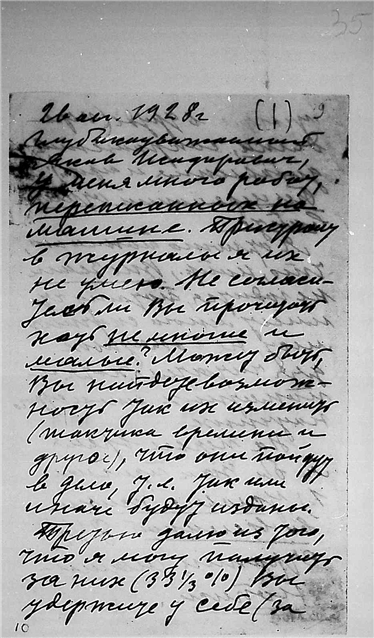 35
26 авг. 1928 г (1) 9
Глубокоуважаемый
Яков Исидорович,
у меня много работ,
переписанных на
машине. Пристроить
в журналы я их
не умею. Не согласи-
тесь ли Вы прочитать
хоть немногие и
малые? Может быть,
Вы найдете возмож-
ность так их изменить
(тактика времени и
другое), что они пойдут
в дело, т.е. так или
иначе будут изданы.
Третью долю из того,
что я могу получить
за них (33⅓%) Вы
удержите у себя (за
10